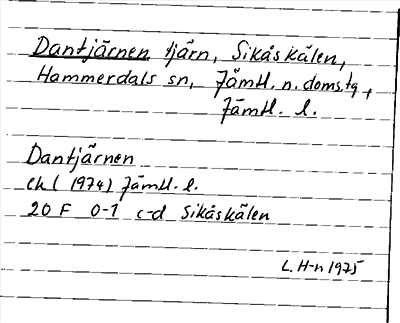 Dantjärnen tjärn, Sikåskälen,
Hammerdals sn, Jämtl. n. doms.tg,
Jämtl. l.
Dantjärnen
ek ( 1974) Jämtl. l.
20 F 0-1 c-d Sikåskälen
L. H-n 1975